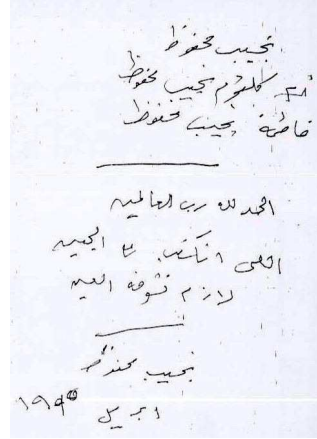 نجيب محفوظ
أم كلثوم نجيب محفوظ
فاطمة نجيب محفوظ
الحمد لله رب العالمين
اللى انكتب ع الجبين
لازم تشوفه العين
نجيب محفوظ
ابريل